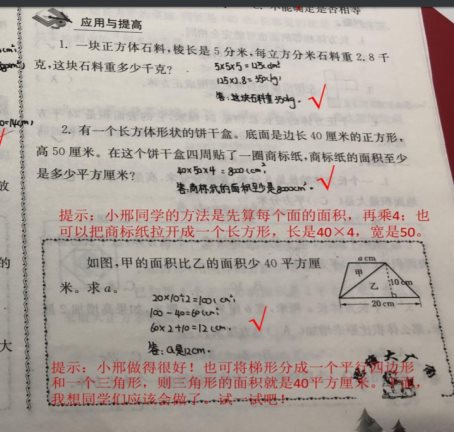 应用与提高
1. 一块正方体石料,棱长是5分米,每立方分米石料重2.8千
克,这块石料重多少千克?
5×5×5=125(dm³)
125×2.8=350(kg)
答:这块石料重350kg.
2. 有一个长方体形状的饼干盒。底面是边长40厘米的正方形,
高50厘米。在这个饼干盒四周贴了一圈商标纸,商标纸的面积至少
是多少平方厘米?
40×50×4=8000(cm²)
答:商标纸的面积至少是8000cm².
提示:小邢同学的方法是先算每个面的面积,再乘4;也
可以把商标纸拉开成一个长方形,长是40×4,宽是50。
如图,甲的面积比乙的面积少40平方厘
米。求a。
a cm
甲
乙
10cm
20 cm
20×10÷2=100(cm²)
100-40=60(cm²)
60×2÷10=12(cm)
答:a是12cm.
提示:小邢做得很好!也可将梯形分成一个平行四边形
和一个三角形,则三角形的面积就是40平方厘米。
我想同学们应该会做了。试一试吧!